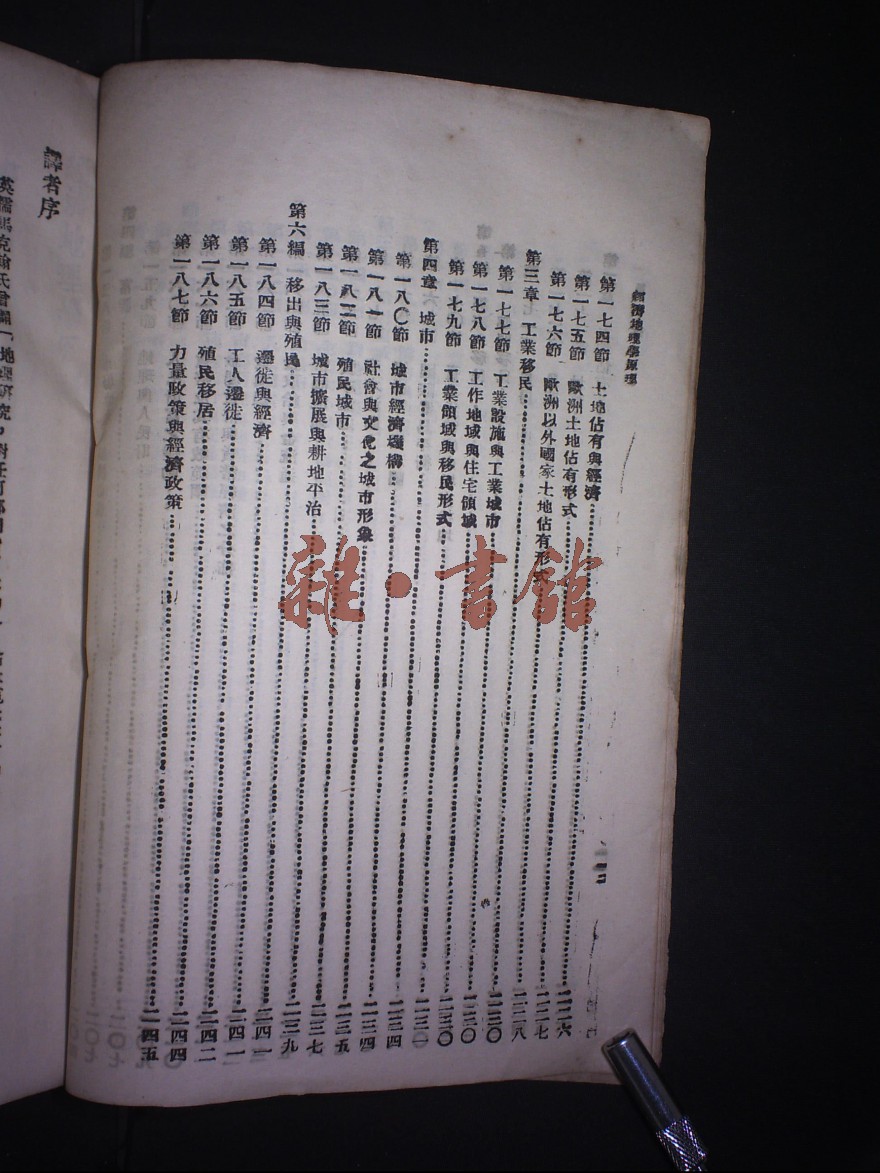 經濟地理學原理
第一七四節 土地佔有與經濟……二二六
第一七五節 歐洲土地佔有形式……二二七
第一七六節 歐洲以外國家土地佔有形式……二二八
第三章 工業移民……二三〇
第一七七節 工業設施與工業城市……二三〇
第一七八節 工作地域與住宅領域……二三〇
第一七九節 工業領域與移民形式……二三一
第四章 城市……二三四
第一八〇節 城市經濟機構……二三四
第一八一節 社會與文化之城市形象……二三五
第一八二節 殖民城市……二三七
第一八三節 城市擴展與耕地平治……二三九
第六編 移出與殖民……二四一
第一八四節 遷徙與經濟……二四一
第一八五節 工人遷徙……二四二
第一八六節 殖民移居……二四四
第一八七節 力量政策與經濟政策……二四五
譯者序
雜·書館